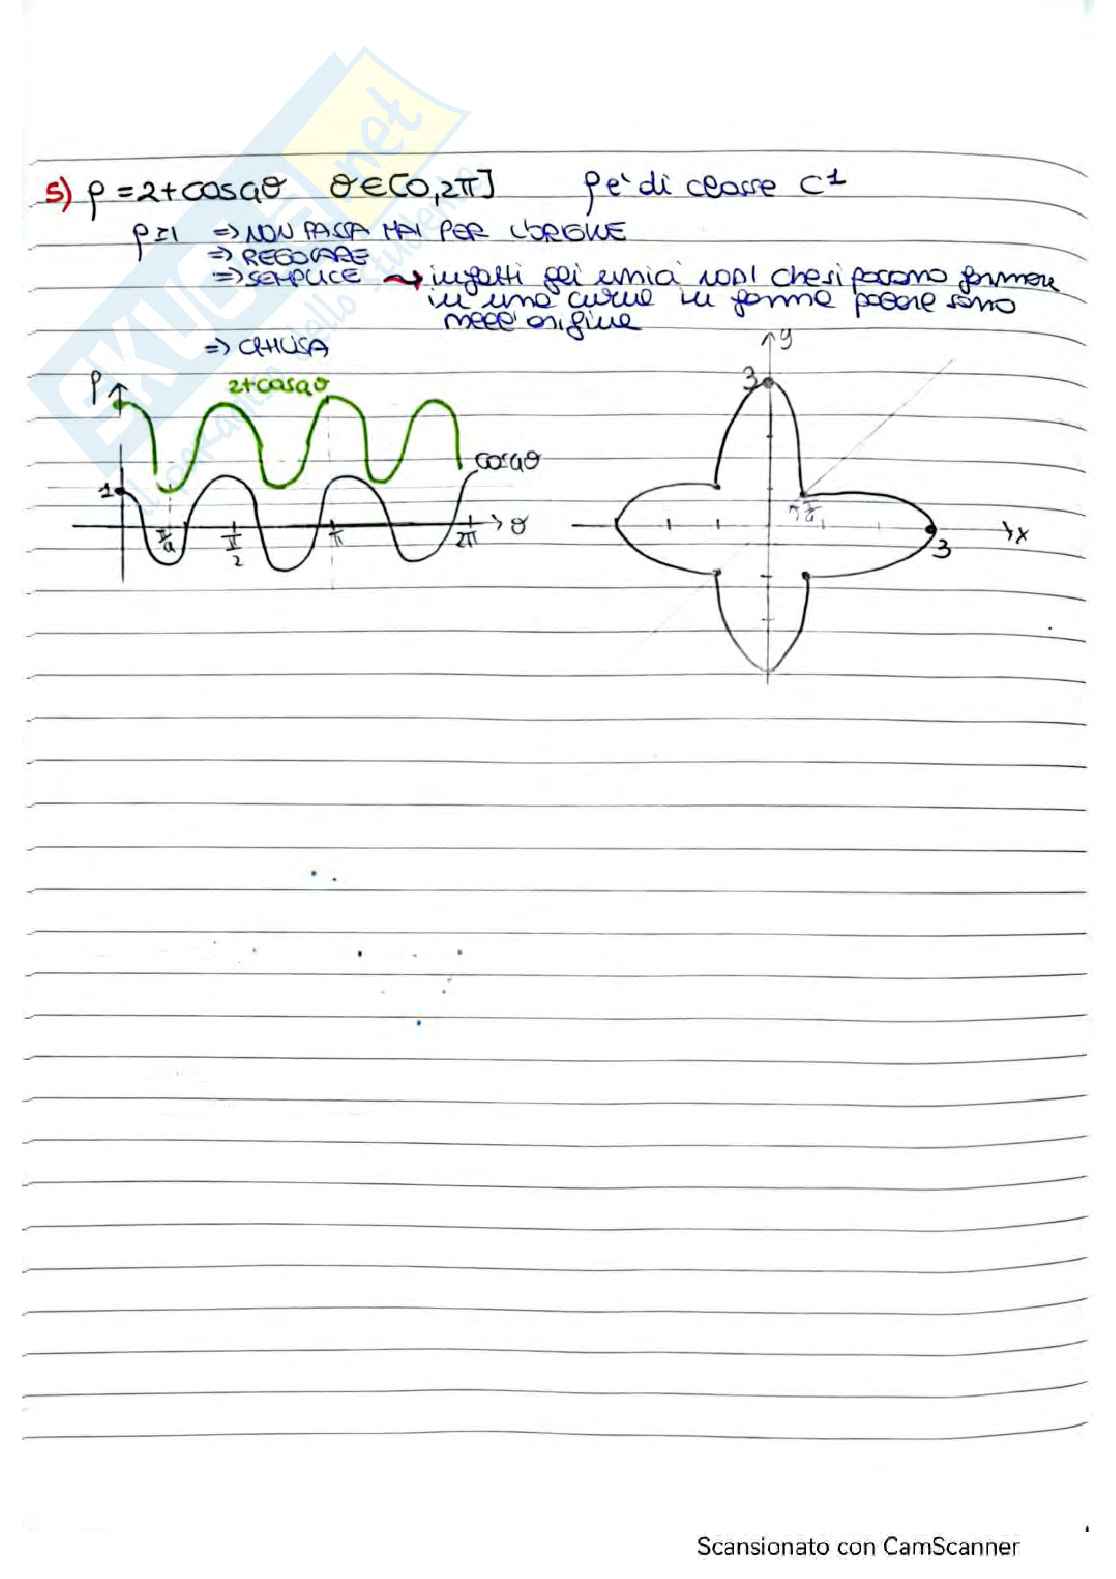 5) ρ = 2+cos4θ θ∈[0,2π] ρ e' di classe C1
ρ≥1 => NON PASSA MAI PER L'ORIGINE
=> REGOLARE
=> SEMPLICE infatti gli unici nodi che si possono formare
in una curva in forma polare sono
nell'origine
=> CHIUSA
y
ρ
2+cos4θ
3
cos4θ
1
π/4
π/2
π
2π
θ
π/4
3
x
SKUOLA.net
Scansionato con CamScanner